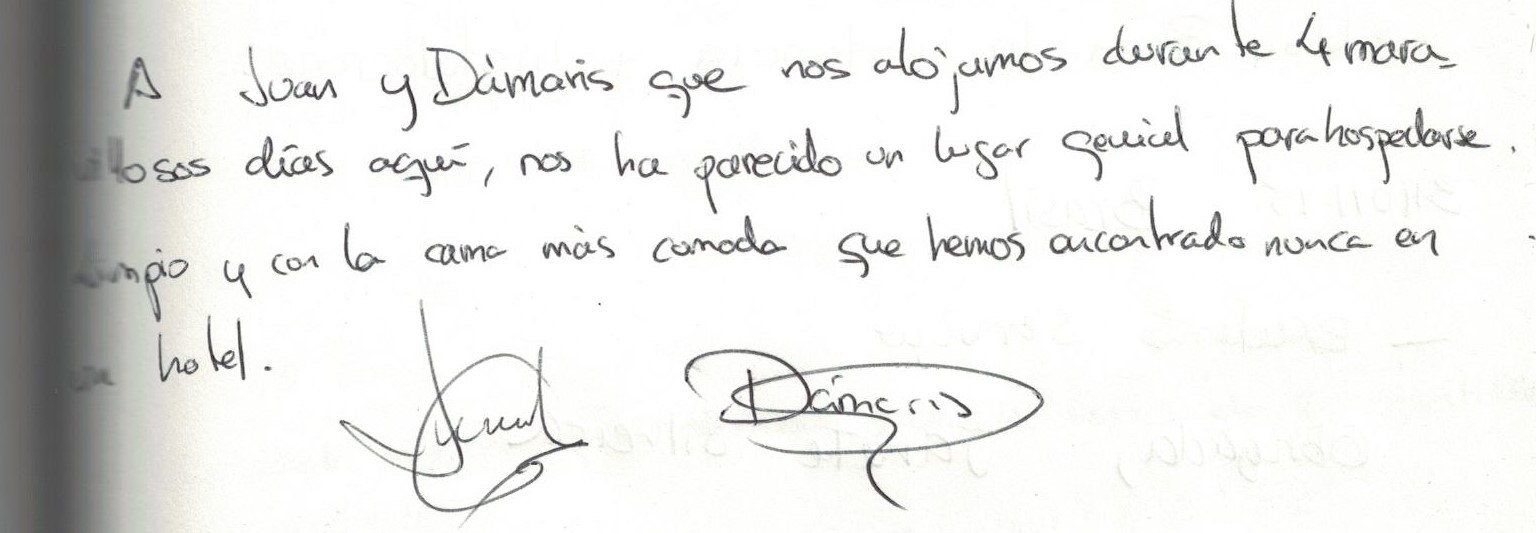 A Juan y Dámaris que nos alojamos durante 4 mara-
villosos días aquí, nos ha parecido un lugar genial para hospedarse.
Limpio y con la cama más comoda que hemos encontrado nunca en
un hotel.
Dámaris